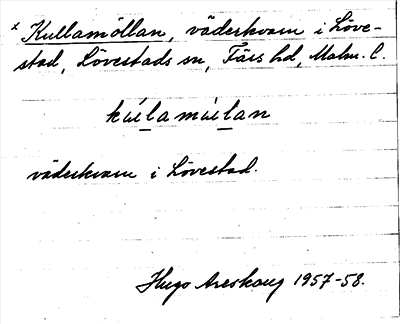 x Kullamöllan, väderkvarn i Löve-
stad, Lövestads sn, Färs hd, Malm. C.
kúlamùlan
väderkvarn i Lövestad.
Hugo Areskoug 1957-58.